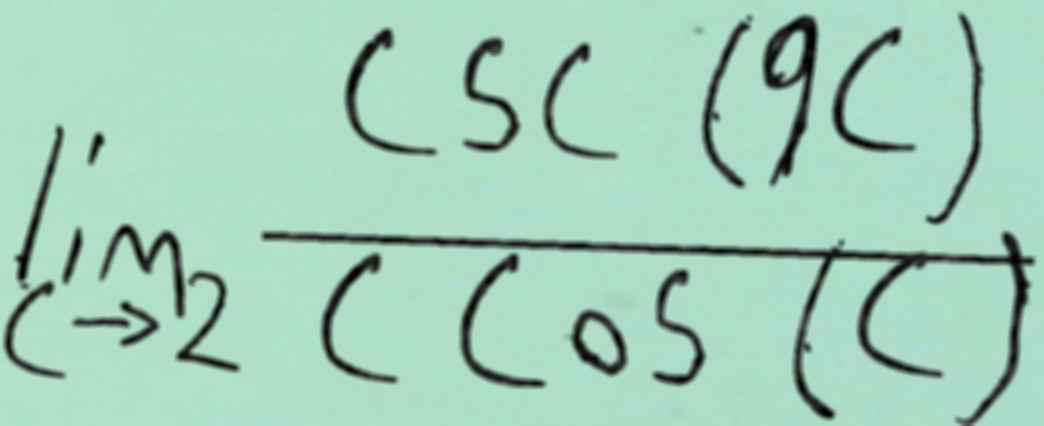 lim c→2 csc(9c) / c cos(c)